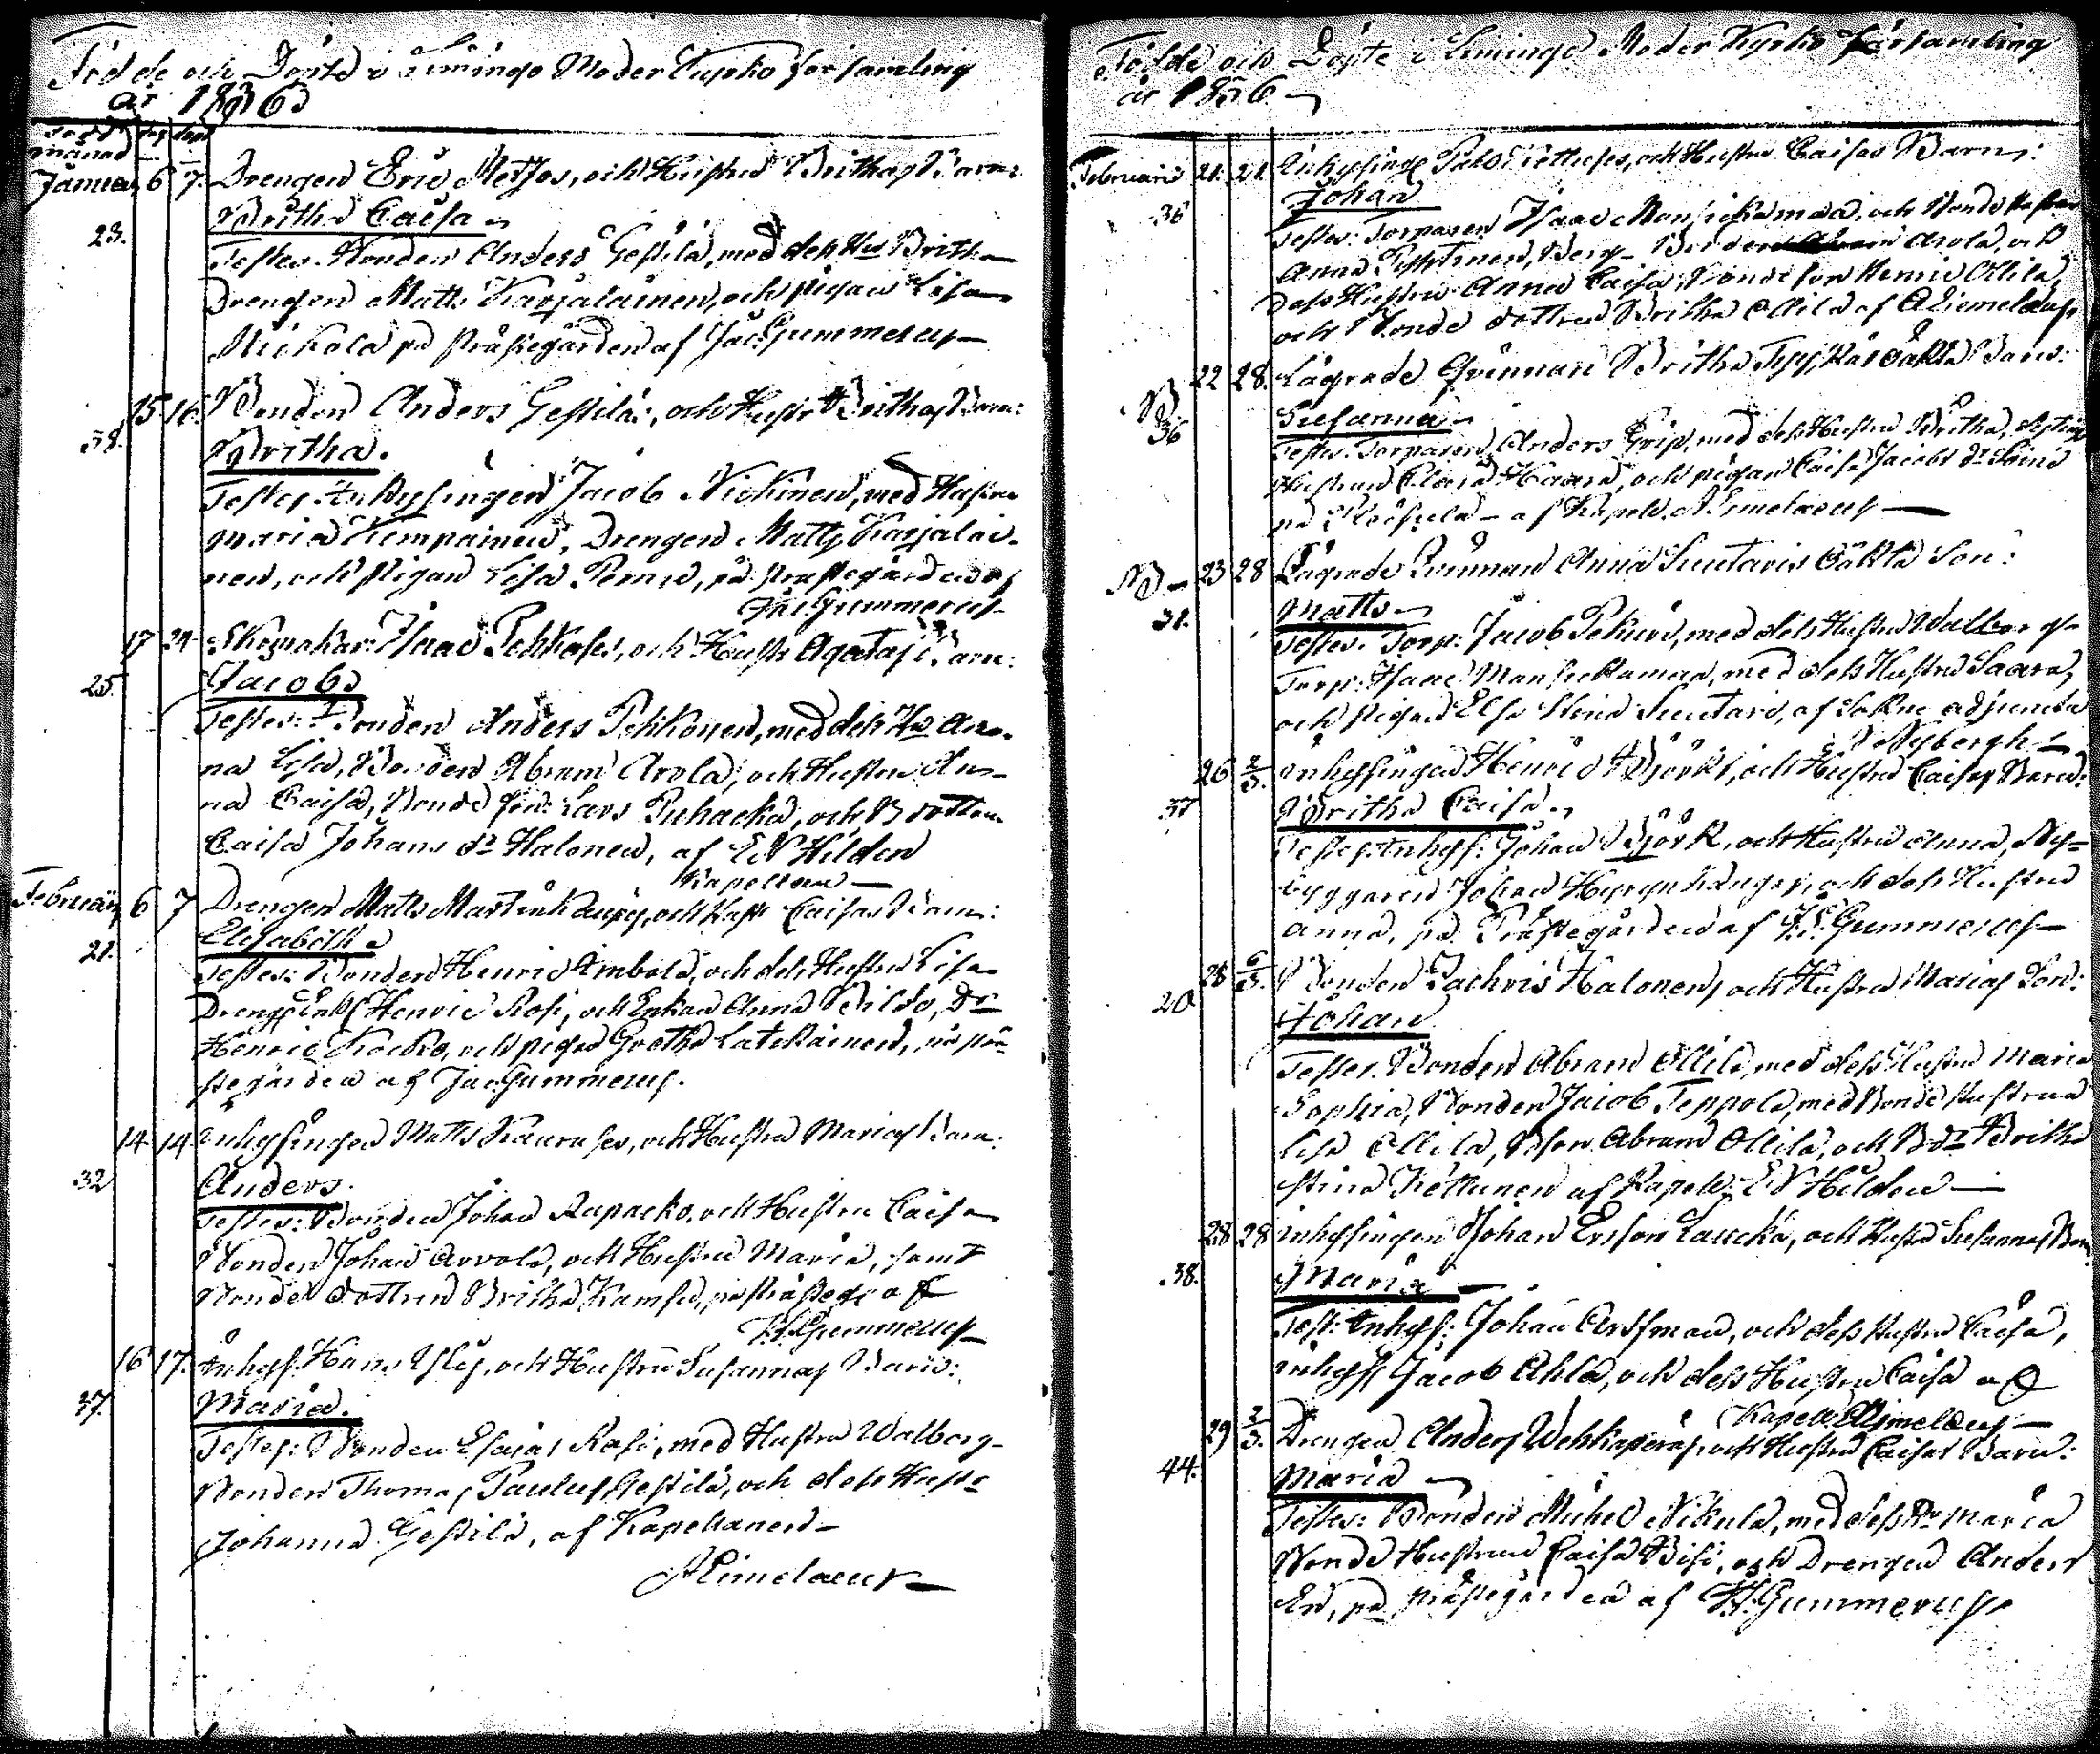 Födde och Döpte i Limingo Moder Kyrko församling
år 1836
född månad dag döpt
Januari 6 7. Drengen Eric Metsos, och Hustrus Brithas Barn:
Britha Caisa
23. Testes. Bonden Anders Gestilä, med dess Hu Britha
Drengen Matts Karjalainen, och pigan Lisa
Nickola på Prästegården af Jac: Gummerus
15 16. Bonden Anders Gestiläs, och Hustr Brithas Barn:
38. Britha.
Testes. Inhysingen Jacob Nickinen, med Hustru
Maria Kempainen, Drengen Matts Karjalai-
nen, och Pigan Lisa Perni, på Prästegården af
Jac: Gummerus
17 24. Skomakar: Isaac Pehkoses, och Hustr Agatas Barn:
25. Jacob
Testes: Bonden Anders Pehkonen, med dess Hu An-
na Lisa, Bonden Abram Arola, och Hustru An-
na Caisa, Bonde Son: Lars Puhacka, och B dottern
Caisa Johans dr Halonen, af EN Hildén
Kapellan
Februari 6 7 Drengen Matts Martinkauppis, och Hustr Caisas Barn:
21. Elisabeth
Testes: Bonden Henric Imbola, och dess Hustru Lisa
Dreng Enkl Henric Rosi, och Enkan Anna Wildo, Dr
Henric Kocko, och pigan Gretha Latckainen, på prä-
stegården af Jac: Gummerus.
14 14 Inhysingen Matts Kauruses, och Hustru Marias Barn:
32 Anders.
Testes: Bonden Johan Rapacko, och Hustru Caisa
Bonden Johan Arvola, och Hustru Maria, samt
Bonde dottren Britha Kamsu, på Prästeg: af
J. Gummerus
16 17. Inhys: Hans Ylies, och Hustru Susannas Barn:
37. Maria.
Testes: Bonden Esaias Rasi, med Hustru Walborg
Bonden Thomas Paulus Gestilä, och dess Hustr
Johanna Gestilä, af Kapellanen
A Eimelaeus
Födde och Döpte i Limingo Moder Kyrko församling
år 1836
Februari 21. 21 Inhysinge Kettuses, och Hustru Caisas Barn:
36 Johan
Testes: Torparen Isaac Mansickamaa, och Bonde Hustrun
Anna Berg Bonden Arola, och
dess Hustru Anna Caisa, Bonde son Henric Ollila,
och Bonde dottren Britha Ollila af A Eimelaeus
22 28. Lägrade Qvinnan Britha oäkta Barn:
B 36 Susanna
Testes. Torparen Anders Grip, med dess Hustru Britha,
Hustrun Clara Haara, och pigan Caisa Jacobs dr
på af Kapell. A Eimelaeus
B 23 28 Lägrade Qvinnan Anna Suutaris oäkta Son:
31. Matts
Testes. Torp: Jacob Pekuri, med dess Hustru Walborg
Torp: Isaac Mansickamaa, med dess Hustru Saara,
och Pigan Elsa Stina Suutari, af Sokne adjuncten
Nybergh
26 2/3. Inhysingen Henric Björks, och Hustru Caisas Barn:
37 Britha Caisa
Testes: Inhys: Johan Björk, och Hustru Anna, Ny-
byggaren Johan Hyrynkangas, och dess Hustru
Anna, på Prästegården af J. Gummerus
28 6/3. Bonden Zachris Halonens, och Hustru Marias Son:
20 Johan
Testes. Bonden Abram Ollila, med dess Hustru Maria
Sophia, Bonden Jacob Teppola, med Bonde Hustrun
Lisa Ollila, B son Abram Ollila, och B dr Britha
Stina Kettunen af Kapell: EN Hildén
28 28 Inhysingen Johan Ersson Lauckas, och Hustru Susannas Barn
38. Maria
Test: Inhys: Johan Arffman, och dess Hustru Caisa,
Inhys Jacob Ahla, och dess Hustru Caisa af
Kapell: A Eimelaeus
29 2/3. Drengen Anders Wehkaperäs, och Hustru Caisas Barn:
44. Maria
Testes: Bonden Michel Nikula, med dess Hu Maria
Bonde Hustrun Caisa Bisi, och Drengen Anders
En, på prästegården af J. Gummerus